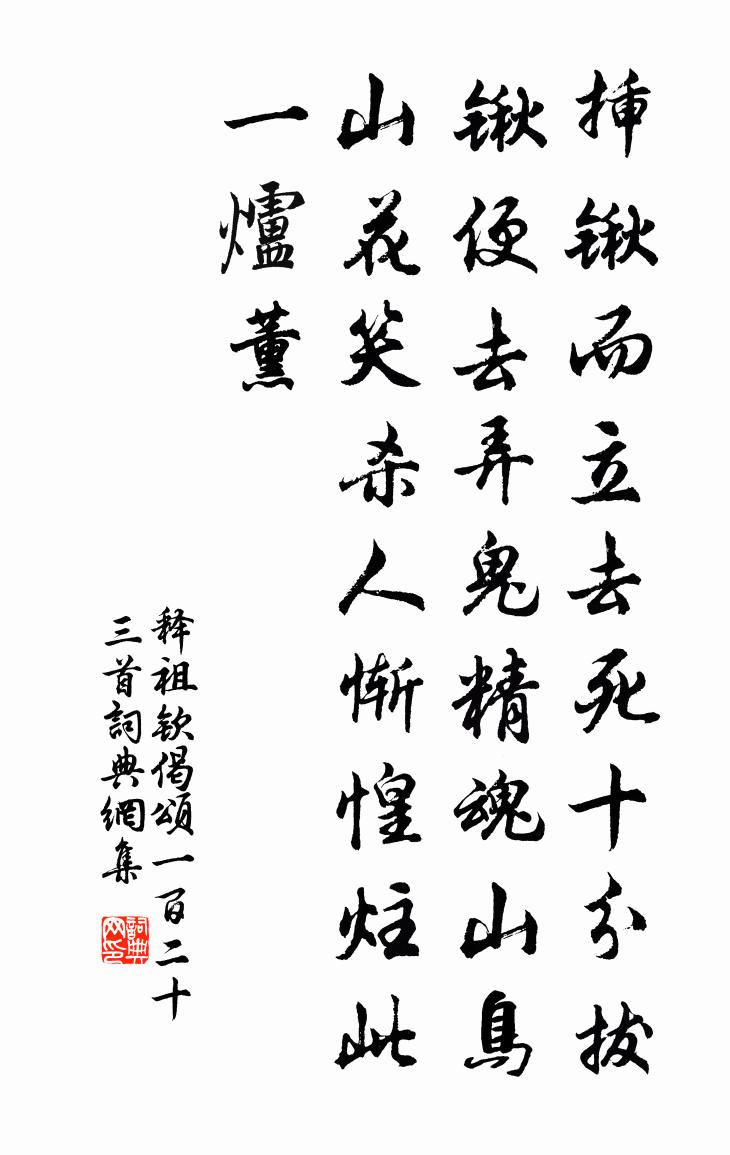 挿锹而立去死十分拔
锹便去弄鬼精魂山鳥
山花笑杀人惭惶炷此
一爐薰
释祖钦偈頌一百二十
三首詞典網集
詞典网印